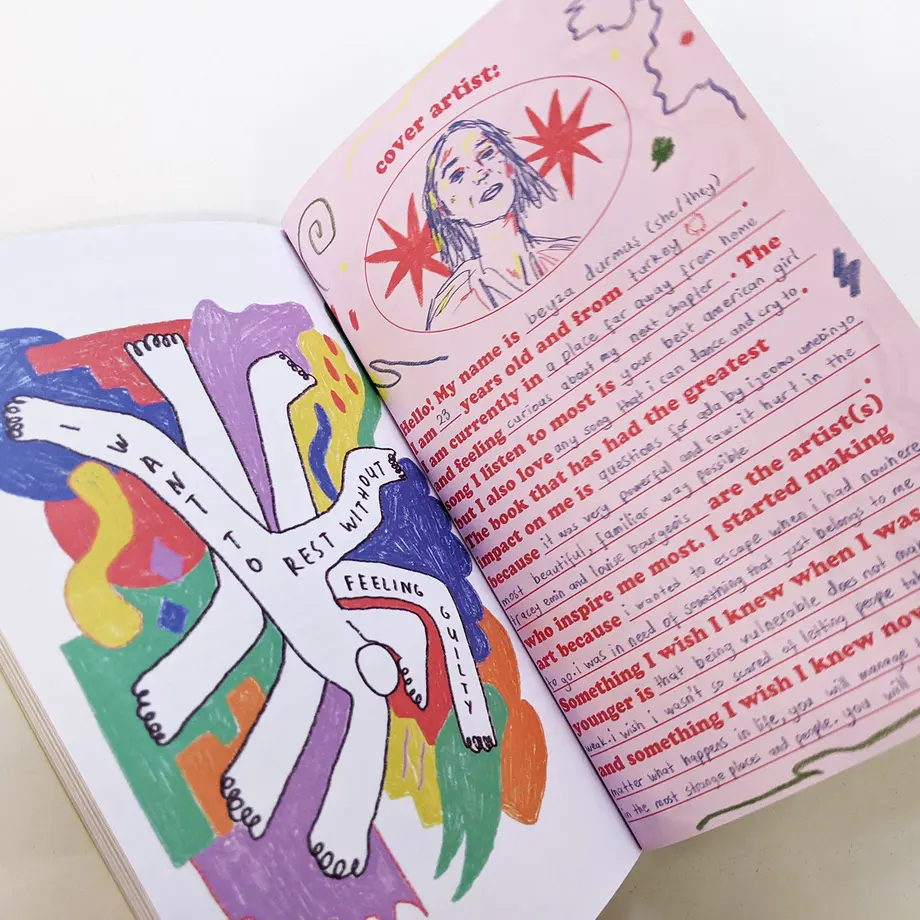 I WANT TO REST WITHOUT
FEELING GUILTY
cover artist:
Hello! My name is beyza durmus (she/they) .
I am 23 years old and from turkey .
I am currently in a place far away from home
and feeling curious about my next chapter . The
song I listen to most is your best american girl
but I also love any song that i can dance and cry to .
The book that has had the greatest
impact on me is questions for ada by ijeoma umebinyo
because it was very powerful and raw. it hurt in the
most beautiful, familiar way possible .
tracey emin and louise bourgeois are the artist(s)
who inspire me most. I started making
art because i wanted to escape when i had nowhere
to go. i was in need of something that just belongs to me
Something I wish I knew when I was
younger is that being vulnerable does not
weak. i wish i wasn't so scared of letting people
and something I wish I knew
matter what happens in life, you will manage
in the most strange places and people. you will